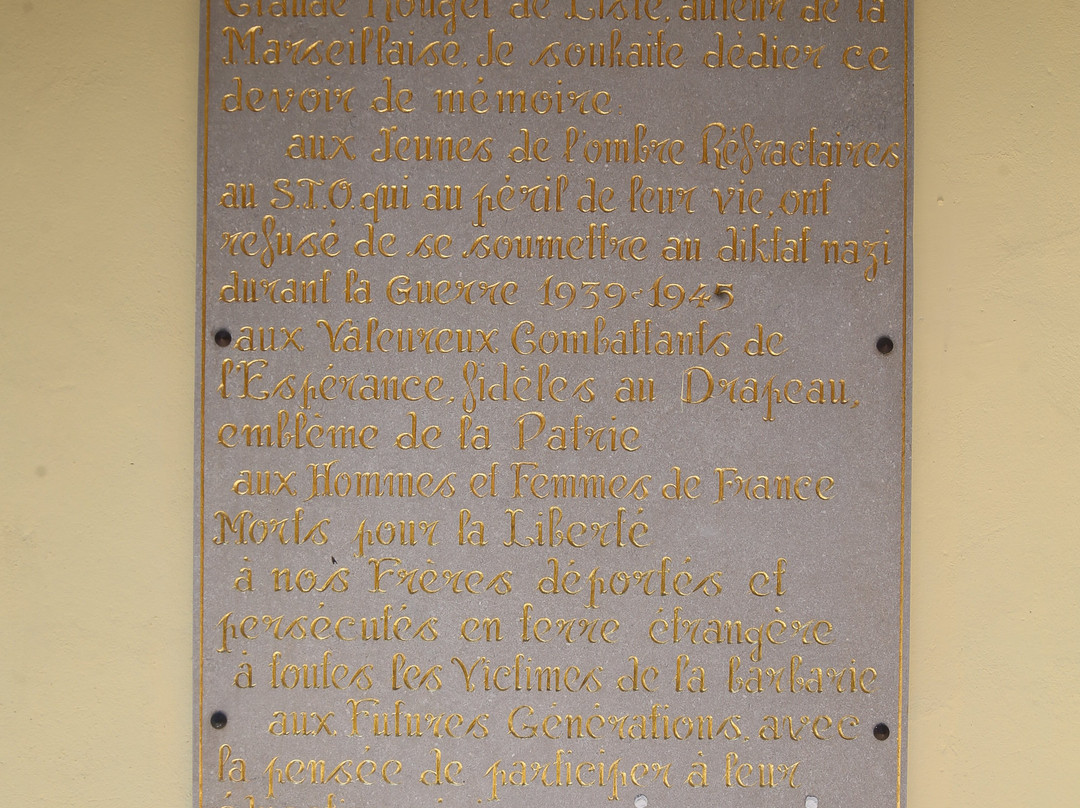 Claude Rouget de Lisle, auteur de la
Marseillaise. Je souhaite dédier ce
devoir de mémoire.
aux Jeunes de l'ombre Réfractaires
au S.T.O. qui au péril de leur vie, ont
refusé de se soumettre au diktat nazi
durant la Guerre 1939-1945
aux Valeureux Combattants de
l'Espérance, fidèles au Drapeau,
emblème de la Patrie
aux Hommes et Femmes de France
Morts pour la Liberté
à nos Frères déportés et
persécutés en terre étrangère
à toutes les Victimes de la barbarie
aux Futures Générations, avec
la pensée de participer à leur